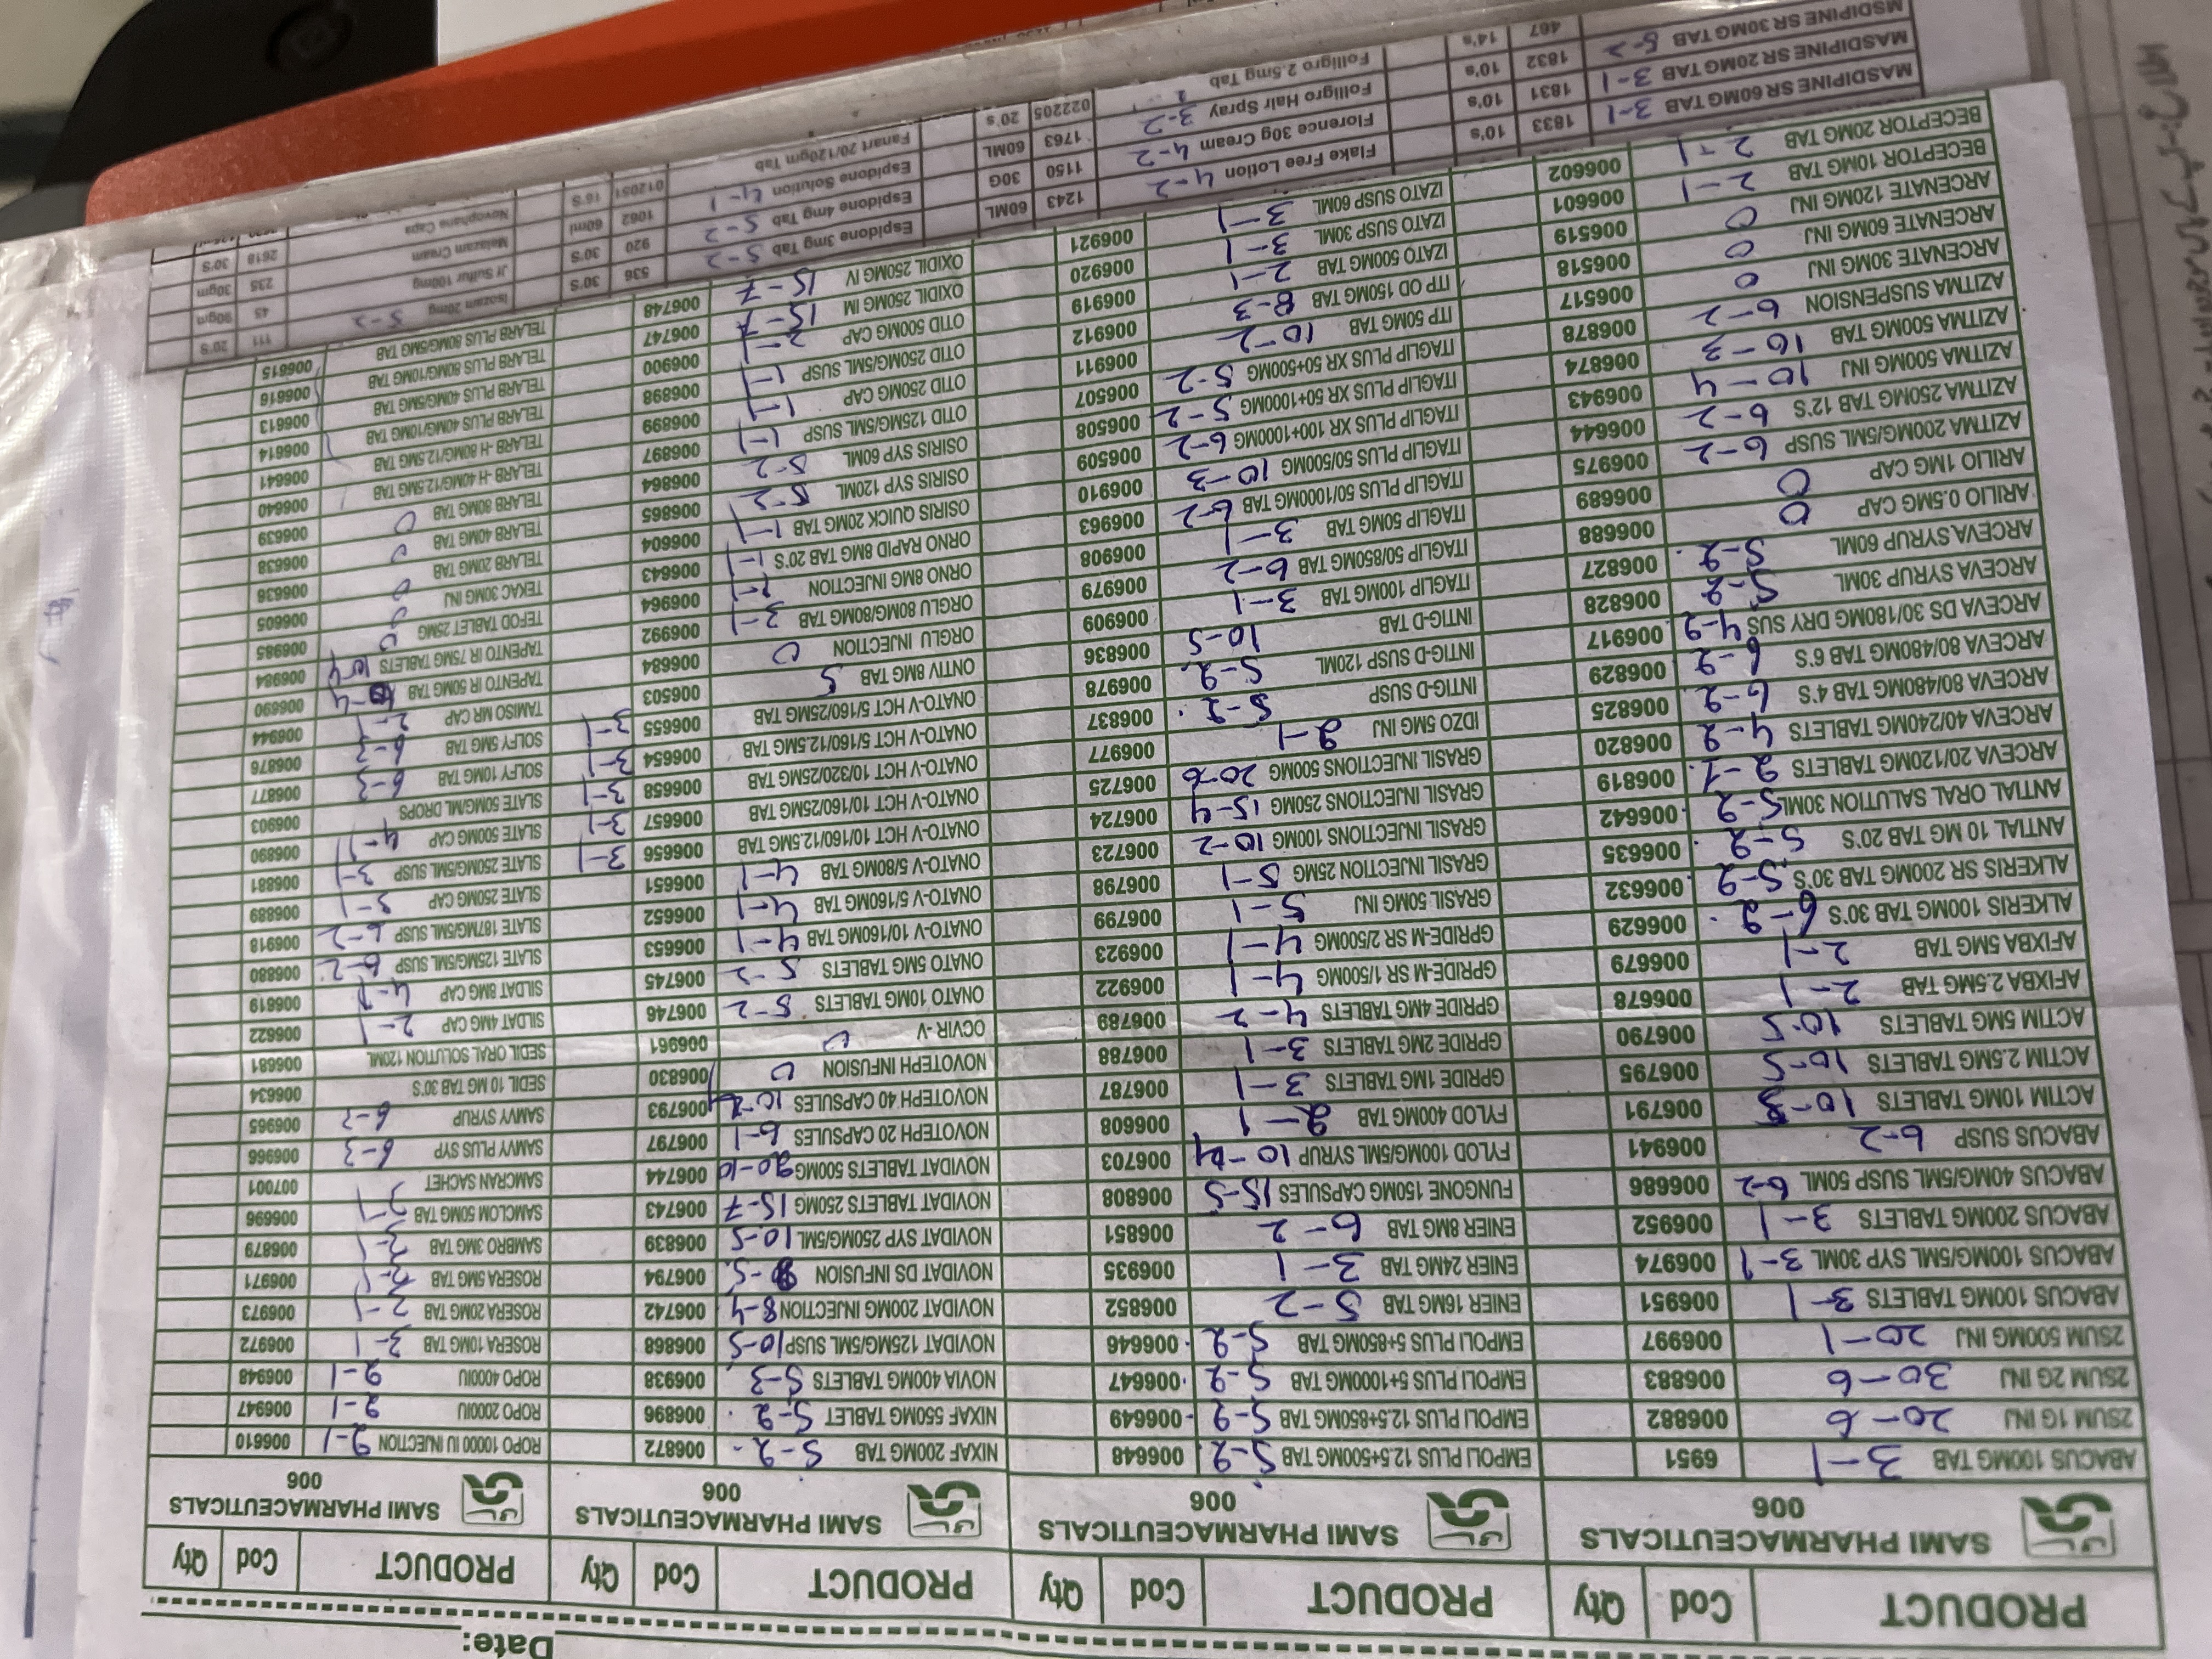 Date:
PRODUCT Cod Qty PRODUCT Cod Qty PRODUCT Cod Qty PRODUCT Cod Qty
SAMI PHARMACEUTICALS
006
ABACUS 100MG TAB 3-1 6951
2SUM 1G INJ 20-6 006882
2SUM 2G INJ 30-6 006883
2SUM 500MG INJ 20-1 006997
ABACUS 100MG TABLETS 3-1 006951
ABACUS 100MG/5ML SYP 30ML 3-1 006974
ABACUS 200MG TABLETS 3-1 006952
ABACUS 40MG/5ML SUSP 50ML 6-2 006686
ABACUS SUSP 6-2 006941
ACTIM 10MG TABLETS 006791
ACTIM 2.5MG TABLETS 10-5 006795
ACTIM 5MG TABLETS 10-5 006790
AFIXBA 2.5MG TAB 2-1 006678
AFIXBA 5MG TAB 2-1 006679
ALKERIS 100MG TAB 30'S 6-2 006629
ALKERIS SR 200MG TAB 30'S 5-2 006632
ANTIAL 10 MG TAB 20'S 5-2 006635
ANTIAL ORAL SALUTION 30ML 5-2 006642
ARCEVA 20/120MG TABLETS 2-1 006819
ARCEVA 40/240MG TABLETS 4-2 006820
ARCEVA 80/480MG TAB 4'S 6-2 006825
ARCEVA 80/480MG TAB 6'S 6-2 006829
ARCEVA DS 30/180MG DRY SUS 4-2 006917
ARCEVA SYRUP 30ML 5-2 006828
ARCEVA SYRUP 60ML 5-2 006827
ARILIO 0.5MG CAP 0 006688
ARILIO 1MG CAP 0 006689
AZITMA 200MG/5ML SUSP 6-2 006975
AZITMA 250MG TAB 12'S 6-2 006644
AZITMA 500MG INJ 10-4 006943
AZITMA 500MG TAB 10-3 006874
AZITMA SUSPENSION 6-2 006878
ARCENATE 30MG INJ 0 006517
ARCENATE 60MG INJ 0 006518
ARCENATE 120MG INJ 0 006519
BECEPTOR 10MG TAB 2-1 006601
BECEPTOR 20MG TAB 2-1 006602
SAMI PHARMACEUTICALS
006
EMPOLI PLUS 12.5+500MG TAB 5-2 006648
EMPOLI PLUS 12.5+850MG TAB 5-2 006649
EMPOLI PLUS 5+1000MG TAB 5-2 006647
EMPOLI PLUS 5+850MG TAB 5-2 006646
ENIER 16MG TAB 5-2 006852
ENIER 24MG TAB 3-1 006935
ENIER 8MG TAB 6-2 006851
FUNGONE 150MG CAPSULES 15-5 006808
FYLOD 100MG/5ML SYRUP 10-4 006703
FYLOD 400MG TAB 2-1 006608
GPRIDE 1MG TABLETS 3-1 006787
GPRIDE 2MG TABLETS 3-1 006788
GPRIDE 4MG TABLETS 4-2 006789
GPRIDE-M SR 1/500MG 4-1 006922
GPRIDE-M SR 2/500MG 4-1 006923
GRASIL 50MG INJ 5-1 006799
GRASIL INJECTION 25MG 5-1 006798
GRASIL INJECTIONS 100MG 10-2 006723
GRASIL INJECTIONS 250MG 15-4 006724
GRASIL INJECTIONS 500MG 20-6 006725
IDZO 5MG INJ 2-1 006977
INTIG-D SUSP 5-2 006837
INTIG-D SUSP 120ML 5-2 006978
INTIG-D TAB 10-5 006836
ITAGLIP 100MG TAB 3-1 006909
ITAGLIP 50/850MG TAB 6-2 006979
ITAGLIP 50MG TAB 3-1 006908
ITAGLIP PLUS 50/1000MG TAB 6-2 006963
ITAGLIP PLUS 50/500MG 10-3 006910
ITAGLIP PLUS XR 100+1000MG 6-2 006509
ITAGLIP PLUS XR 50+1000MG 5-2 006508
ITAGLIP PLUS XR 50+500MG 5-2 006507
ITP 50MG TAB 10-2 006911
ITP OD 150MG TAB 8-3 006912
IZATO 500MG TAB 2-1 006919
IZATO SUSP 30ML 3-1 006920
IZATO SUSP 60ML 3-1 006921
SAMI PHARMACEUTICALS
006
NIXAF 200MG TAB 5-2 006872
NIXAF 550MG TABLET 5-2 006896
NOVIA 400MG TABLETS 5-3 006938
NOVIDAT 125MG/5ML SUSP 10-5 006868
NOVIDAT 200MG INJECTION 8-4 006742
NOVIDAT DS INFUSION 006794
NOVIDAT SYP 250MG/5ML 10-5 006839
NOVIDAT TABLETS 250MG 15-7 006743
NOVIDAT TABLETS 500MG 20-10 006744
NOVOTEPH 20 CAPSULES 6-1 006797
NOVOTEPH 40 CAPSULES 10-2 006793
NOVOTEPH INFUSION 0 006830
OCVIR -V 0 006961
ONATO 10MG TABLETS 5-2 006746
ONATO 5MG TABLETS 5-2 006745
ONATO-V 10/160MG TAB 4-1 006653
ONATO-V 5/160MG TAB 4-1 006652
ONATO-V 5/80MG TAB 4-1 006651
ONATO-V HCT 10/160/12.5MG TAB 006656 3-1
ONATO-V HCT 10/160/25MG TAB 006657 3-1
ONATO-V HCT 10/320/25MG TAB 006658 3-1
ONATO-V HCT 5/160/12.5MG TAB 006654 3-1
ONATO-V HCT 5/160/25MG TAB 006655 3-1
ONTIV 8MG TAB 5 006503
ORGLU INJECTION 0 006684
ORGLU 80MG/80MG TAB 3-1 006992
ORNO 8MG INJECTION 2-1 006964
ORNO RAPID 8MG TAB 20'S 1-1 006643
OSIRIS QUICK 20MG TAB 1-1 006604
OSIRIS SYP 120ML 5-2 006865
OSIRIS SYP 60ML 5-2 006864
OTID 125MG/5ML SUSP 1-1 006897
OTID 250MG CAP 1-1 006899
OTID 250MG/5ML SUSP 1-1 006898
OTID 500MG CAP 2-1 006900
OXIDIL 250MG IM 15-7 006747
OXIDIL 250MG IV 15-7 006748
SAMI PHARMACEUTICALS
006
ROPO 10000 IU INJECTION 2-1 006610
ROPO 2000IU 2-1 006947
ROPO 4000IU 2-1 006948
ROSERA 10MG TAB 3-1 006972
ROSERA 20MG TAB 2-1 006973
ROSERA 5MG TAB 006971
SAMBRO 3MG TAB 006879
SAMCLOM 50MG TAB 006696
SAMCRAN SACHET 007001
SAMVY PLUS SYP 6-3 006966
SAMVY SYRUP 006965
SEDIL 10 MG TAB 30'S 006634
SEDIL ORAL SOLUTION 120ML 006681
SILDAT 4MG CAP 2-1 006622
SILDAT 8MG CAP 4-1 006619
SLATE 125MG/5ML SUSP 6-2 006880
SLATE 187MG/5ML SUSP 6-2 006918
SLATE 250MG CAP 3-1 006889
SLATE 250MG/5ML SUSP 3-1 006881
SLATE 500MG CAP 4-1 006890
SLATE 50MG/ML DROPS 006903
SOLFY 10MG TAB 6-3 006877
SOLFY 5MG TAB 6-3 006876
TAMISO MR CAP 2-1 006944
TAPENTO IR 50MG TAB 006690
TAPENTO IR 75MG TABLETS 10-4 006984
TEFOD TABLET 25MG 0 006985
TEXAC 30MG INJ 0 006605
TELARB 20MG TAB 0 006636
TELARB 40MG TAB 0 006638
TELARB 80MG TAB 0 006639
TELARB -H 40MG/12.5MG TAB 006640
TELARB -H 80MG/12.5MG TAB 006641
TELARB PLUS 40MG/10MG TAB 006614
TELARB PLUS 40MG/5MG TAB 006613
TELARB PLUS 80MG/10MG TAB 006616
TELARB PLUS 80MG/5MG TAB 006615
MASDIPINE SR 60MG TAB 3-1 1833 10's
MASDIPINE SR 20MG TAB 3-1 1831 10's
MSDIPINE SR 30MG TAB 5-2 1832 10's
467 14's
Flake Free Lotion 4-2 1243 60ML
Florence 30g Cream 4-2 1150 30G
Folligro Hair Spray 3-2 1763 60ML
Folligro 2.5mg Tab 022205 20's
Espidone 3mg Tab 5-2 536 30'S
Espidone 4mg Tab 5-2 920 30'S
Espidone Solution 4-1 1062 60ml
Fanart 20/120gm Tab 012051 16'S
Isozam 20mg 5-2 111 20'S
Jf Sulfur 100mg 45 90gm
Melazam Cream 235 30gm
Novophane Caps 2618 30'S